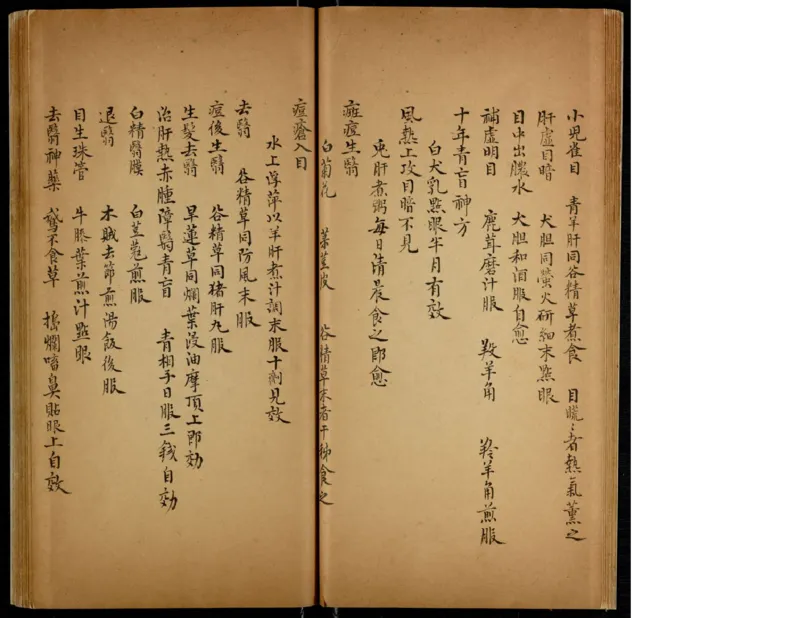 小児雀目　青羊肝同谷精草煮食　目䀮〻者熱氣薫之
肝虚目暗　犬胆同螢火研細末點眼
目中出膿水　犬胆和酒服自愈
補虚明目　鹿茸磨汁服　羖羊角　羚羊角煎服
十年青盲神方
白犬乳點眼半月有效
風熱上攻目暗不見
兎肝煮粥每日清晨食之即愈
痘生翳
白菊花　菉荳皮　谷精草末者干柹食之
痘瘡入目
水上浮萍以羊肝煮汁調末服十劑見效
去翳　谷精草同防風末服
痘後生翳　谷精草同猪肝丸服
生髮去翳　旱蓮草同爛葉浸油摩頂上即効
治肝熱赤腫障翳青盲　青相子日服三錢自効
白精翳膜　白荳蔲煎服
退翳　木賊去節煎湯飯後服
目生珠管　牛膝葉煎汁點眼
去翳神藥　鵞不食草　搗爛㗜鼻貼眼上自效